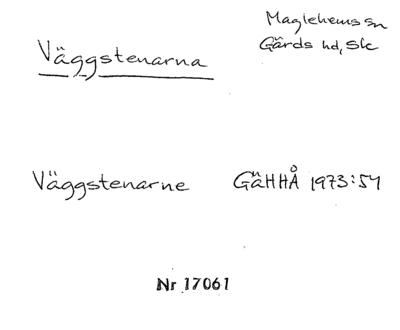 Maglehems sn
Gärds hd, Sk
Väggstenarna
Väggstenarne GäHHÅ 1973:54
Nr 17061